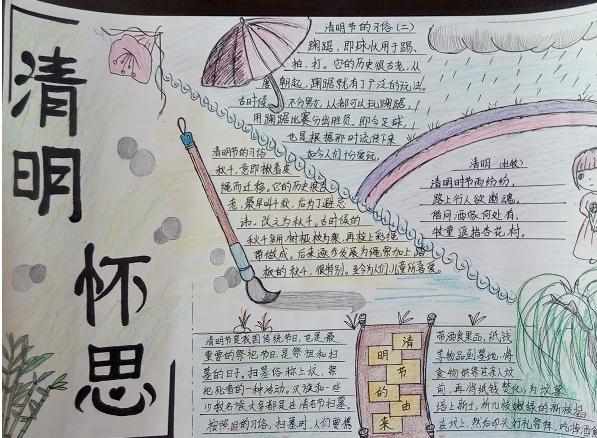 清明
怀思
清明节的习俗(二)
蹴鞠,即球状用于踢、
拍、打。它的历史很古老,从
朝起,蹴鞠就有了广泛的玩法。
古时候,不分男女,人都可以玩蹴鞠。
用蹴鞠比赛分出胜负,即今足球,
也是根据那时流传下来
如今人们十分爱玩。
清明节的习俗
秋千,意即揪着皮
绳而迁移。它的历史很古
老,最早叫千秋,后为了避忌
讳,改之为秋千。古时候的
秋千多用树桠枝为架,再拴上彩带
带做成。后来逐步发展为绳索加上踏
板的秋千,很特别。至今为人们儿童所喜爱。
清明 (杜牧)
清明时节雨纷纷,
路上行人欲断魂。
借问酒家何处有,
牧童遥指杏花村。
清明节是我国传统节日,也是最
重要的祭祀节日,是祭祖和扫
墓的日子。扫墓俗称上坟,祭
祀死者的一种活动。汉族和一些
少数民族大多都是在清明节扫墓。
按照旧的习俗,扫墓时,人们要携
清明节的由来
带酒食果品、纸钱
等物品到墓地,将
食物供祭在亲人坟
前,再将纸钱焚化,为坟墓
培上新土,折几枝嫩绿的新枝插
在坟上,然后叩头行礼祭拜,